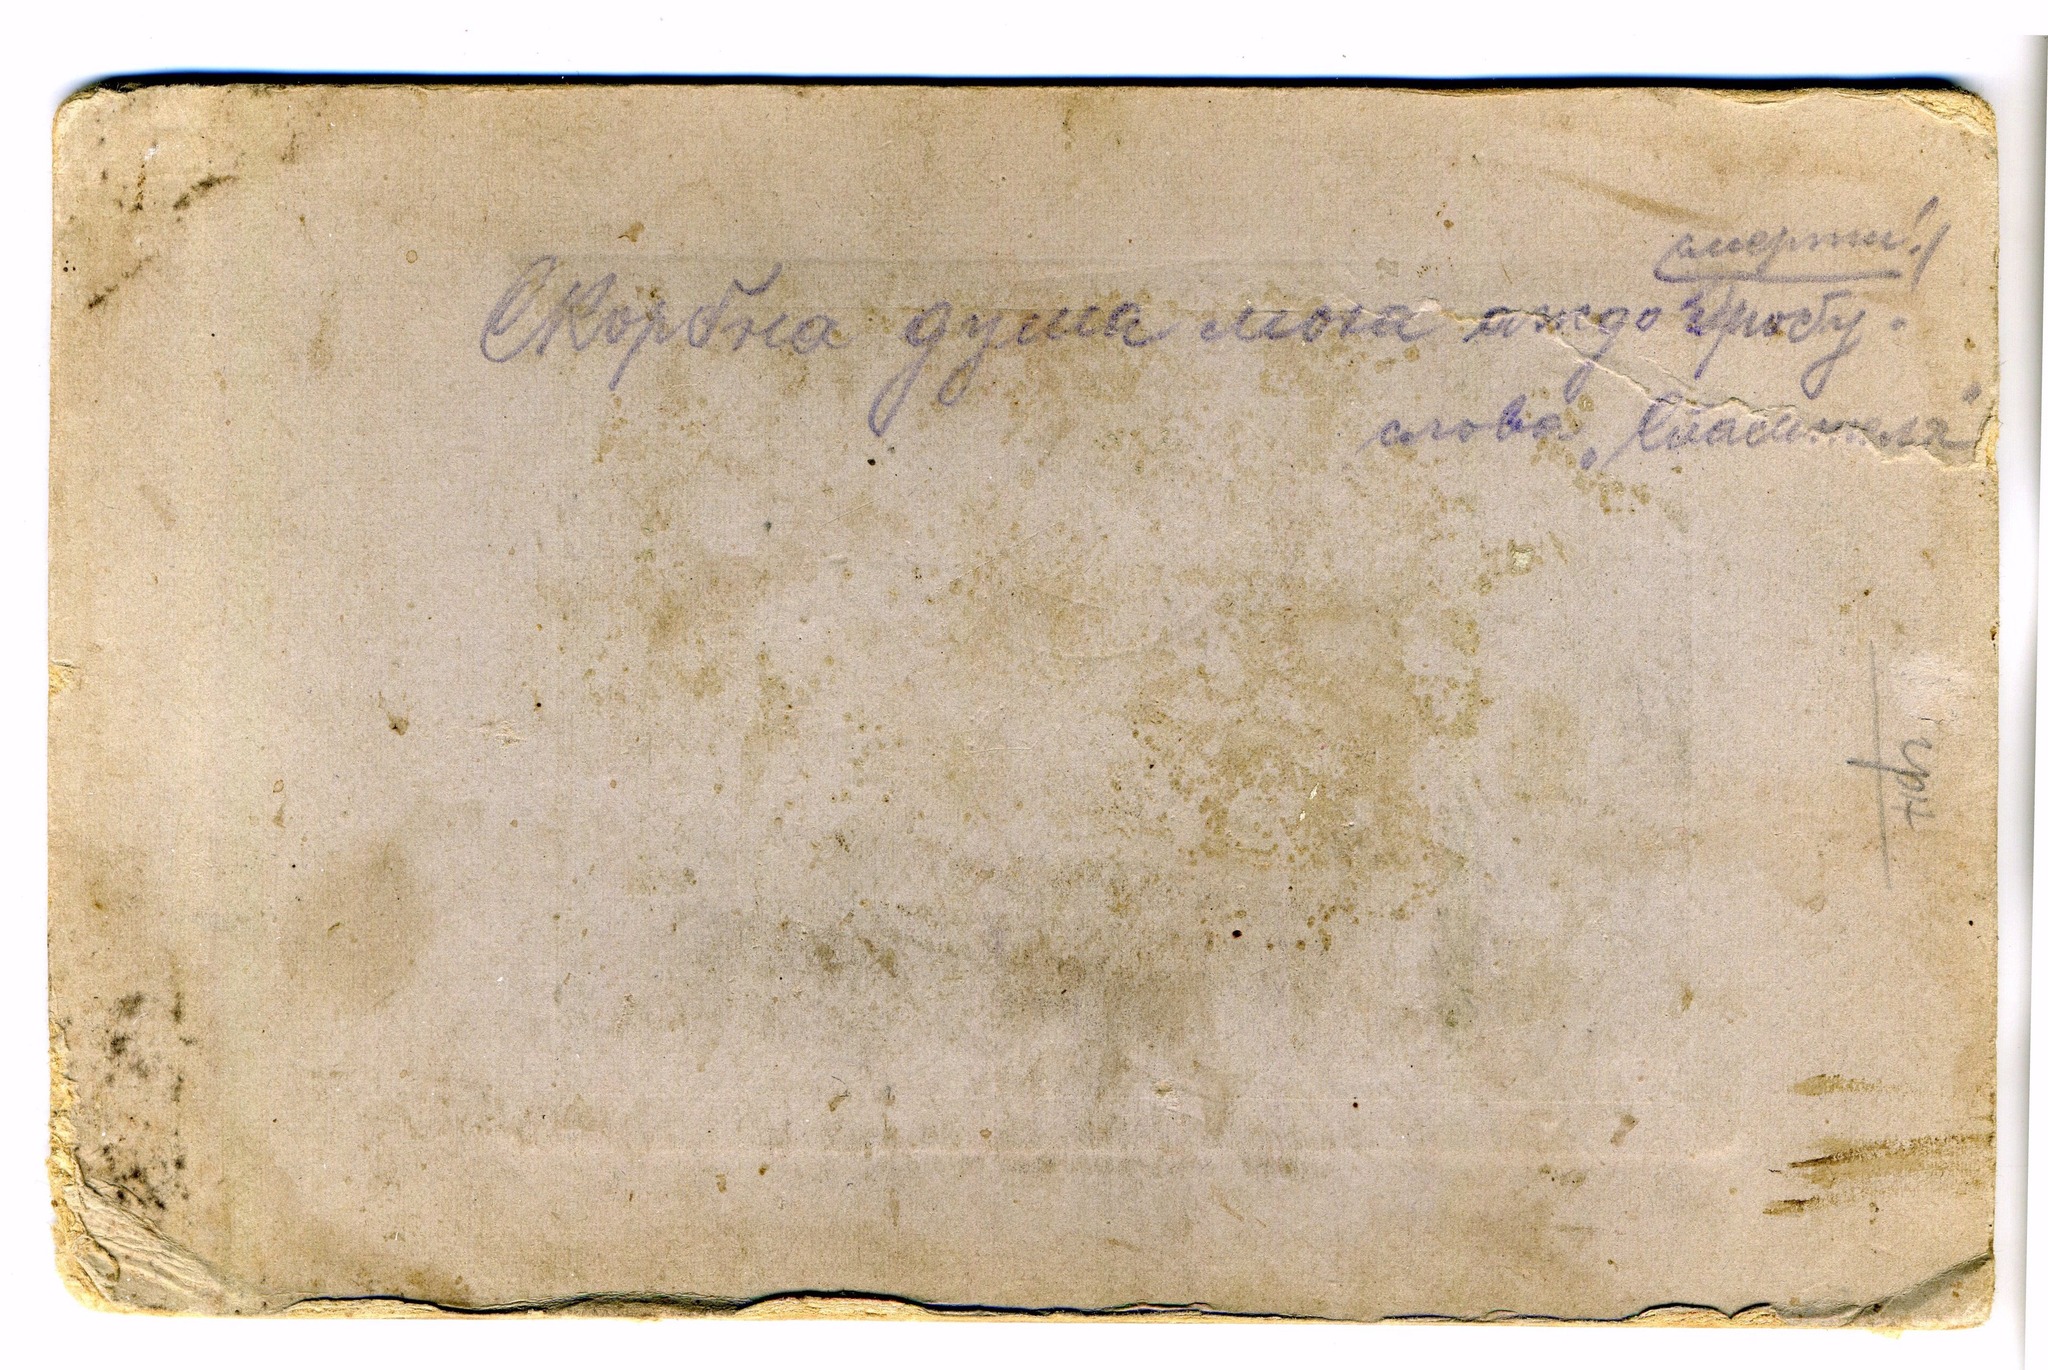 смерти!
Скорбна душа моя аждо гробу.
слова „Спасителя"